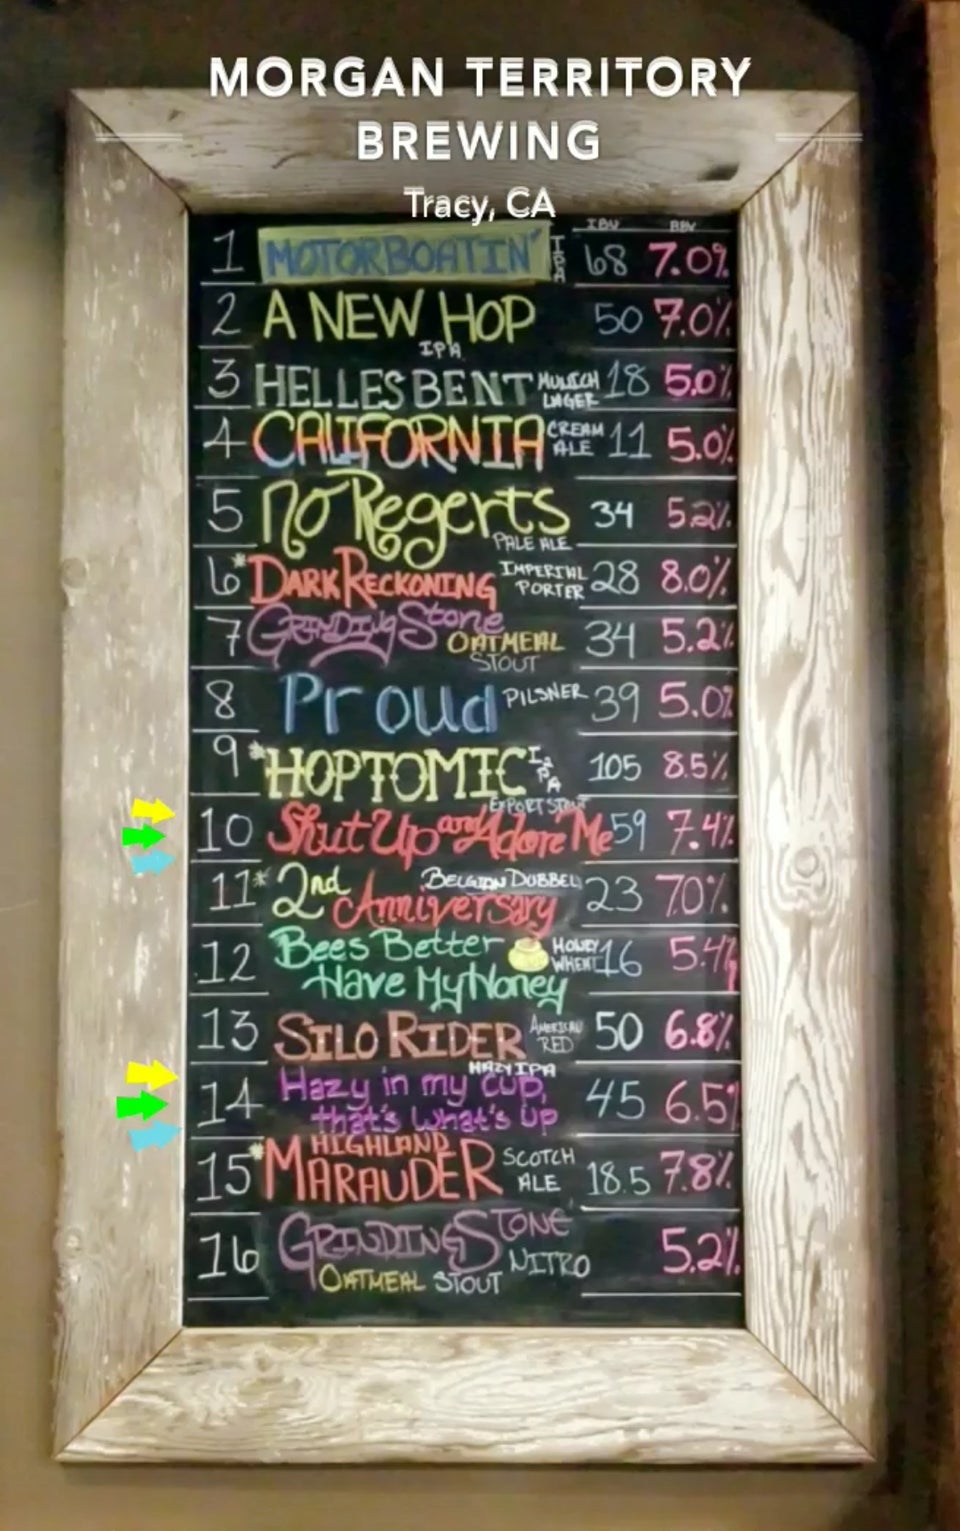 MORGAN TERRITORY
BREWING
Tracy, CA
IBU ABV
1 MOTORBOATIN' IPA 68 7.0%
2 A NEW HOP 50 7.0%
IPA
3 HELLES BENT MUNICH LAGER 18 5.0%
4 CALIFORNIA CREAM ALE 11 5.0%
5 No Regerts 34 5.2%
PALE ALE
6 *DARK RECKONING IMPERIAL PORTER 28 8.0%
7 GRINDING Stone OATMEAL STOUT 34 5.2%
8 Proud PILSNER 39 5.0%
9 *HOPTOMIC IPA 105 8.5%
EXPORT STOUT
10 Shut Up and Adore Me 59 7.4%
11 *2nd Anniversary BELGIAN DUBBEL 23 7.0%
12 Bees Better HONEY WHEAT 16 5.4%
Have My Honey
13 SILO RIDER AMERICAN RED 50 6.8%
HAZY IPA
14 Hazy in my cup, 45 6.5%
that's what's up
15 *HIGHLAND MARAUDER SCOTCH ALE 18.5 7.8%
16 GRINDING STONE NITRO 5.2%
OATMEAL STOUT